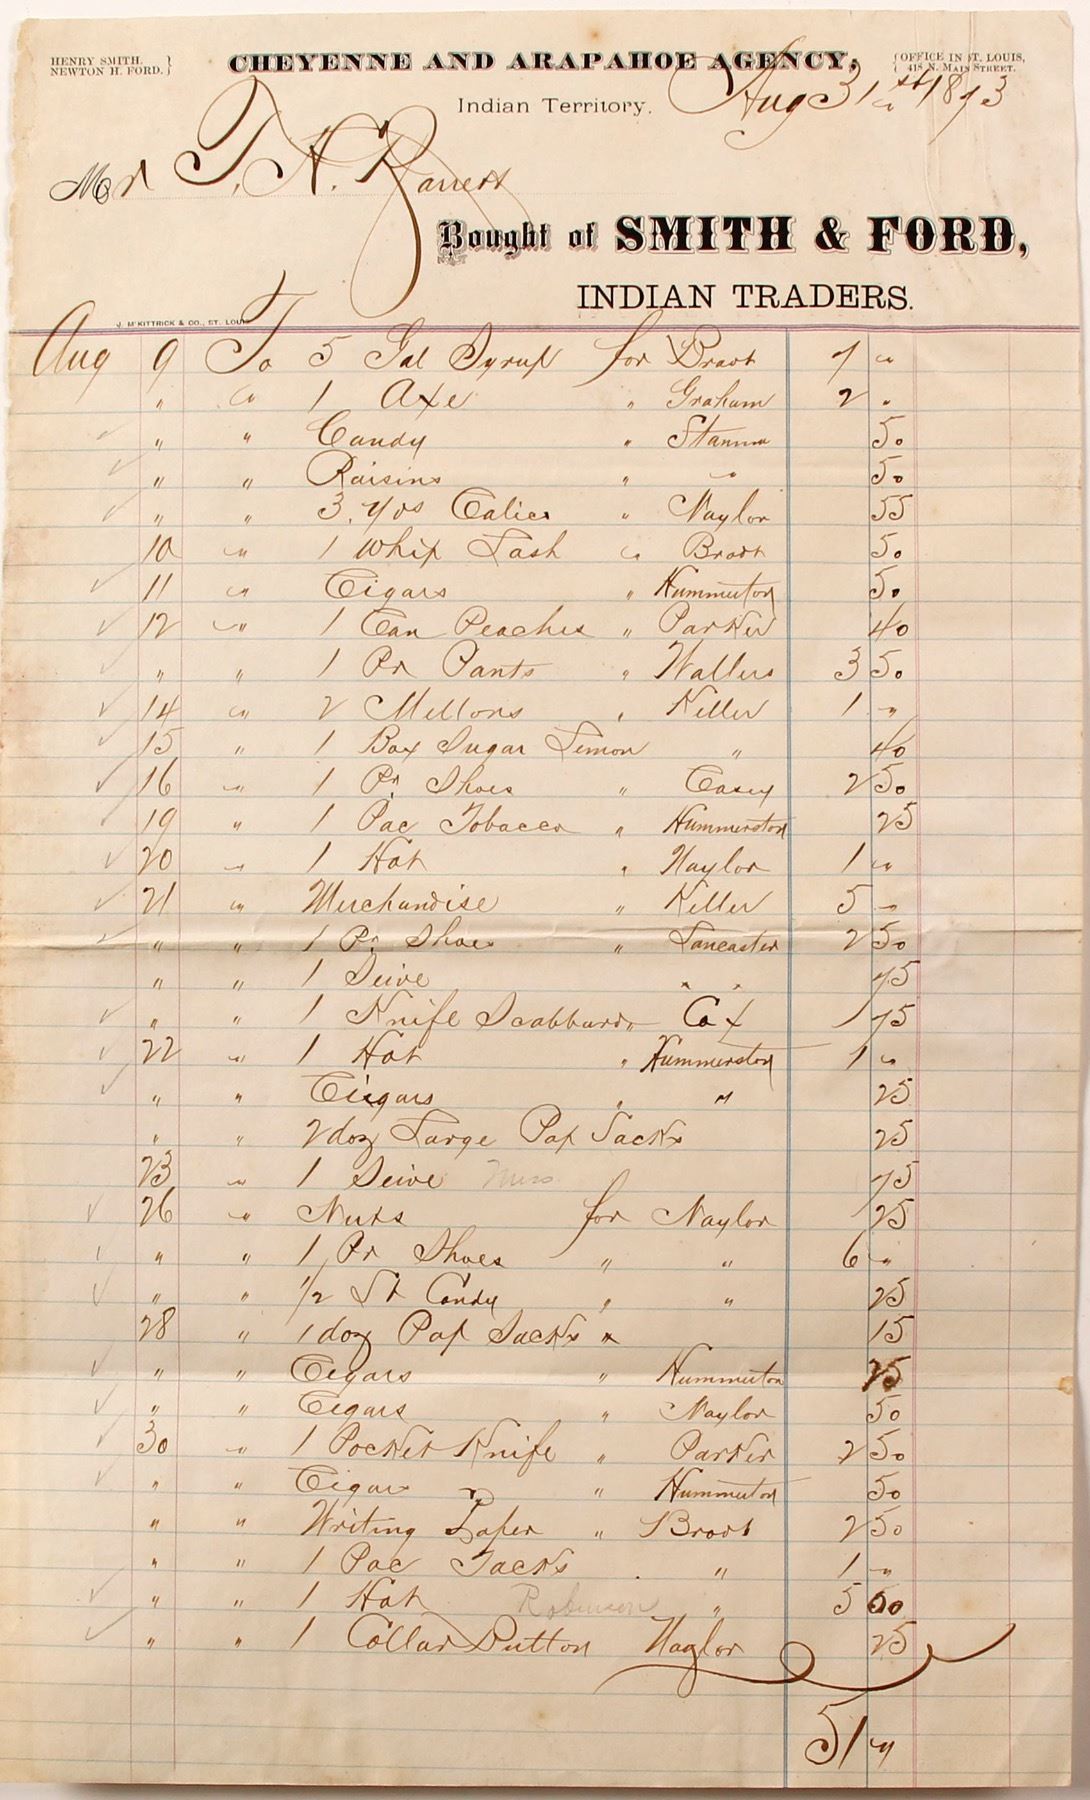 HENRY SMITH. NEWTON H. FORD.
CHEYENNE AND ARAPAHOE AGENCY,
OFFICE IN ST. LOUIS, 418 N. MAIN STREET.
Indian Territory. Aug 31st 1873
Mr T. H. Barrett
Bought of SMITH & FORD,
INDIAN TRADERS.
J. McKITTRICK & CO., ST. LOUIS
Aug 9 To 5 Gal Syrup for Bradt 7 "
" " 1 Axe " Graham 2 "
" " Candy " 50
" " Raisins " " 50
" " 3 yds Calico " Naylor 55
10 " 1 Whip Lash " Bradt 50
11 " Cigars " Hummerston 50
12 " 1 Can Peaches " Parker 40
" " 1 Pr Pants " Walters 3 50
14 " 2 Mellons " Keller 1 "
15 " 1 Box Sugar Lemon " 40
16 " 1 Pr Shoes " Casey 2 50
19 " 1 Pac Tobacco " Hummerston 25
20 " 1 Hat " Naylor 1 "
21 " Merchandise " Keller 5 "
" " 1 Pr Shoes " Lancaster 2 50
" " 1 Seive " " 75
" " 1 Knife Scabbard " Cox 1 75
22 " 1 Hat " Hummerston 1 "
" " Cigars " " 25
" " 2 doz Large Pap Sacks 25
23 " 1 Seive Mess 75
26 " Nuts for Naylor 25
" " 1 Pr Shoes " " 6 "
" " 1/2 Lb Candy " " 25
28 " 1 doz Pap Sacks " 15
" " Cigars " Hummerston 25
" " Cigars " Naylor 50
30 " 1 Pocket Knife " Parker 2 50
" " Cigars " Hummerston 50
" " Writing Paper " Bradt 2 50
" " 1 Pac Tacks " " 1 "
" " 1 Hat Robinson " 5 50
" " 1 Collar Button Naylor 25
51 "